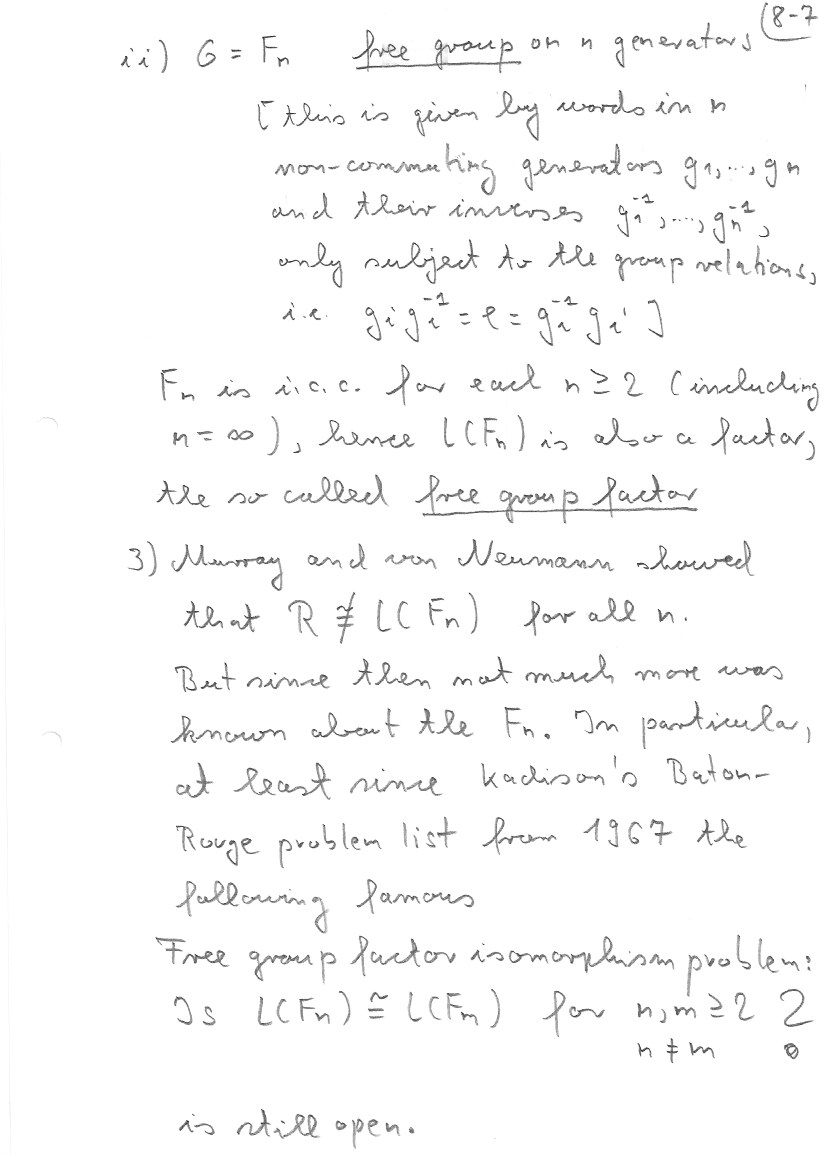 8-7
ii) G = Fₙ free group on n generators
[this is given by words in n
non-commuting generators g₁,...,gₙ
and their inverses g₁⁻¹,...,gₙ⁻¹,
only subject to the group relations,
i.e. gᵢgᵢ⁻¹ = e = gᵢ⁻¹gᵢ]
Fₙ is i.c.c. for each n ≥ 2 (including
n = ∞), hence L(Fₙ) is also a factor,
the so called free group factor
3) Murray and von Neumann showed
that R ≇ L(Fₙ) for all n.
But since then not much more was
known about the Fₙ. In particular,
at least since Kadison's Baton-
Rouge problem list from 1967 the
following famous
Free group factor isomorphism problem:
Is L(Fₙ) ≅ L(Fₘ) for n,m ≥ 2 ?
n ≠ m
is still open.